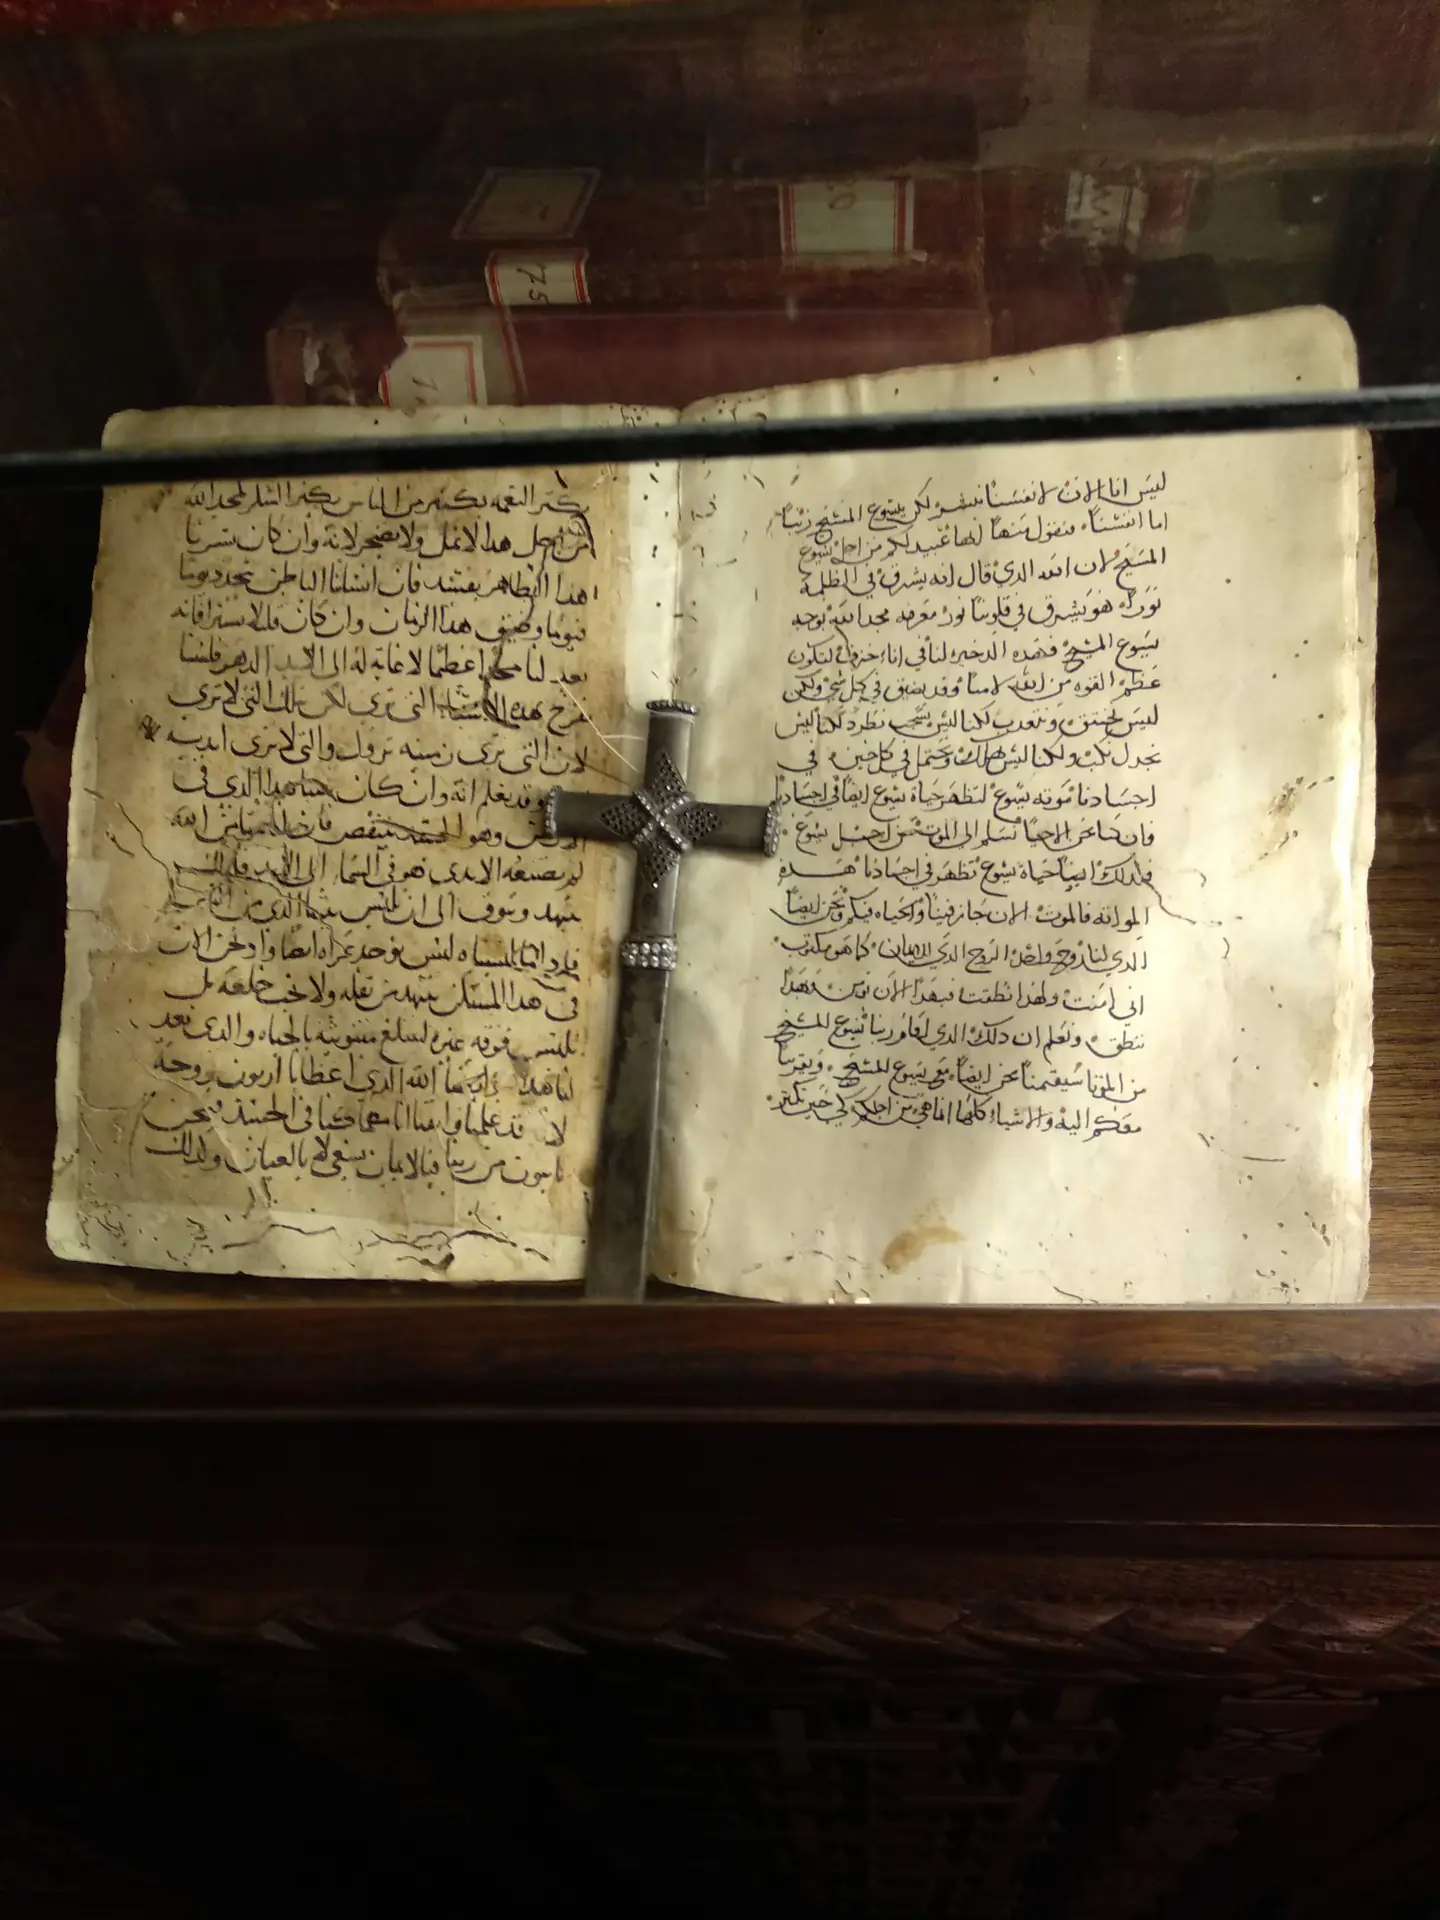 ليس انا الان لانفسنا نبشر لكن بيسوع المسيح ربنا
اما انفسنا فنقول عنها انها عبيد لكم من اجل يسوع
المسيح لان الله الذي قال انه يشرق في الظلمة
نوره هو يشرق في قلوبنا نور معرفه مجد الله بوجه
يسوع المسيح فهذه الدخيره لنا في اناء خزف لتكون
عظم القوه من الله لا منا وقد نضيق في كل شي ولكن
ليس نختنق ونتعدب لكنا ليس نطرد لكنا ليس
نجدل نكب ولكنا ليس نهلك ونحتمل في كل حين في
اجسادنا موته يسوع لتظهر حياة يسوع ايضا في اجسادنا
فان كنا نحن الاحيا نسلم الى الموت من اجل يسوع
فلدلك ايضا حياة يسوع تظهر في اجسادنا هده
المواته فالموت الان جاز فينا والحياه فيكم ونحن ايضا
الدي لنا روح واحد الروح الدي للايمان كما هو مكتوب
اني امنت ولهذا نطقت فبهذا الان نومن وبهذا
ننطق ونعلم ان دلك الدي اقام ربنا يسوع المسيح
من الموتا سيقيمنا نحن ايضا مع يسوع المسيح ويقربنا
معكم اليه والاشياء كلها انما هي من اجلكم لكي حين تكثر
تكثر النعمه بكثيره من الناس يكثر الشكر لمجد الله
من اجل هدا لا نمل ولا نضجر لانه وان كان بشرنا
هدا الظاهر يفسد فان انساننا الباطن يتجدد يوما
فيوما وضيق هذا الزمان وان كان قليلا يسيرا فانه
يعد لنا مجدا عظيما لا غايه له الى الابد الدهر فلسنا
نفرح بهده الاشياء التى ترى لكن بتلك التى لا ترى
لان التى ترى زمنيه تزول والتى لا ترى ابديه
وقد نعلم انه وان كان بيتنا هدا الدي في
الارض وهو الجسد ينتقص فان لنا من الله
لم تصنعه الايدى هو في السما الى الابد
نتنهد ونتوق الى ان نلبس بيتنا الدى من السما
لبسناه ليس نوجد عراه ايضا واد نحن الان
فى هدا المسكن نتنهد من ثقله ولا نحب خلعه بل
نلبس فوقه غيره ليبلع ميتوتيه بالحياه والدى يعد
لنا هدا الله الدي اعطانا اربون روحه
لان قد علمنا انا مهما كنا في الجسد فنحن
غايبون من ربنا فبالايمان نسعى لا بالعيان ولدلك